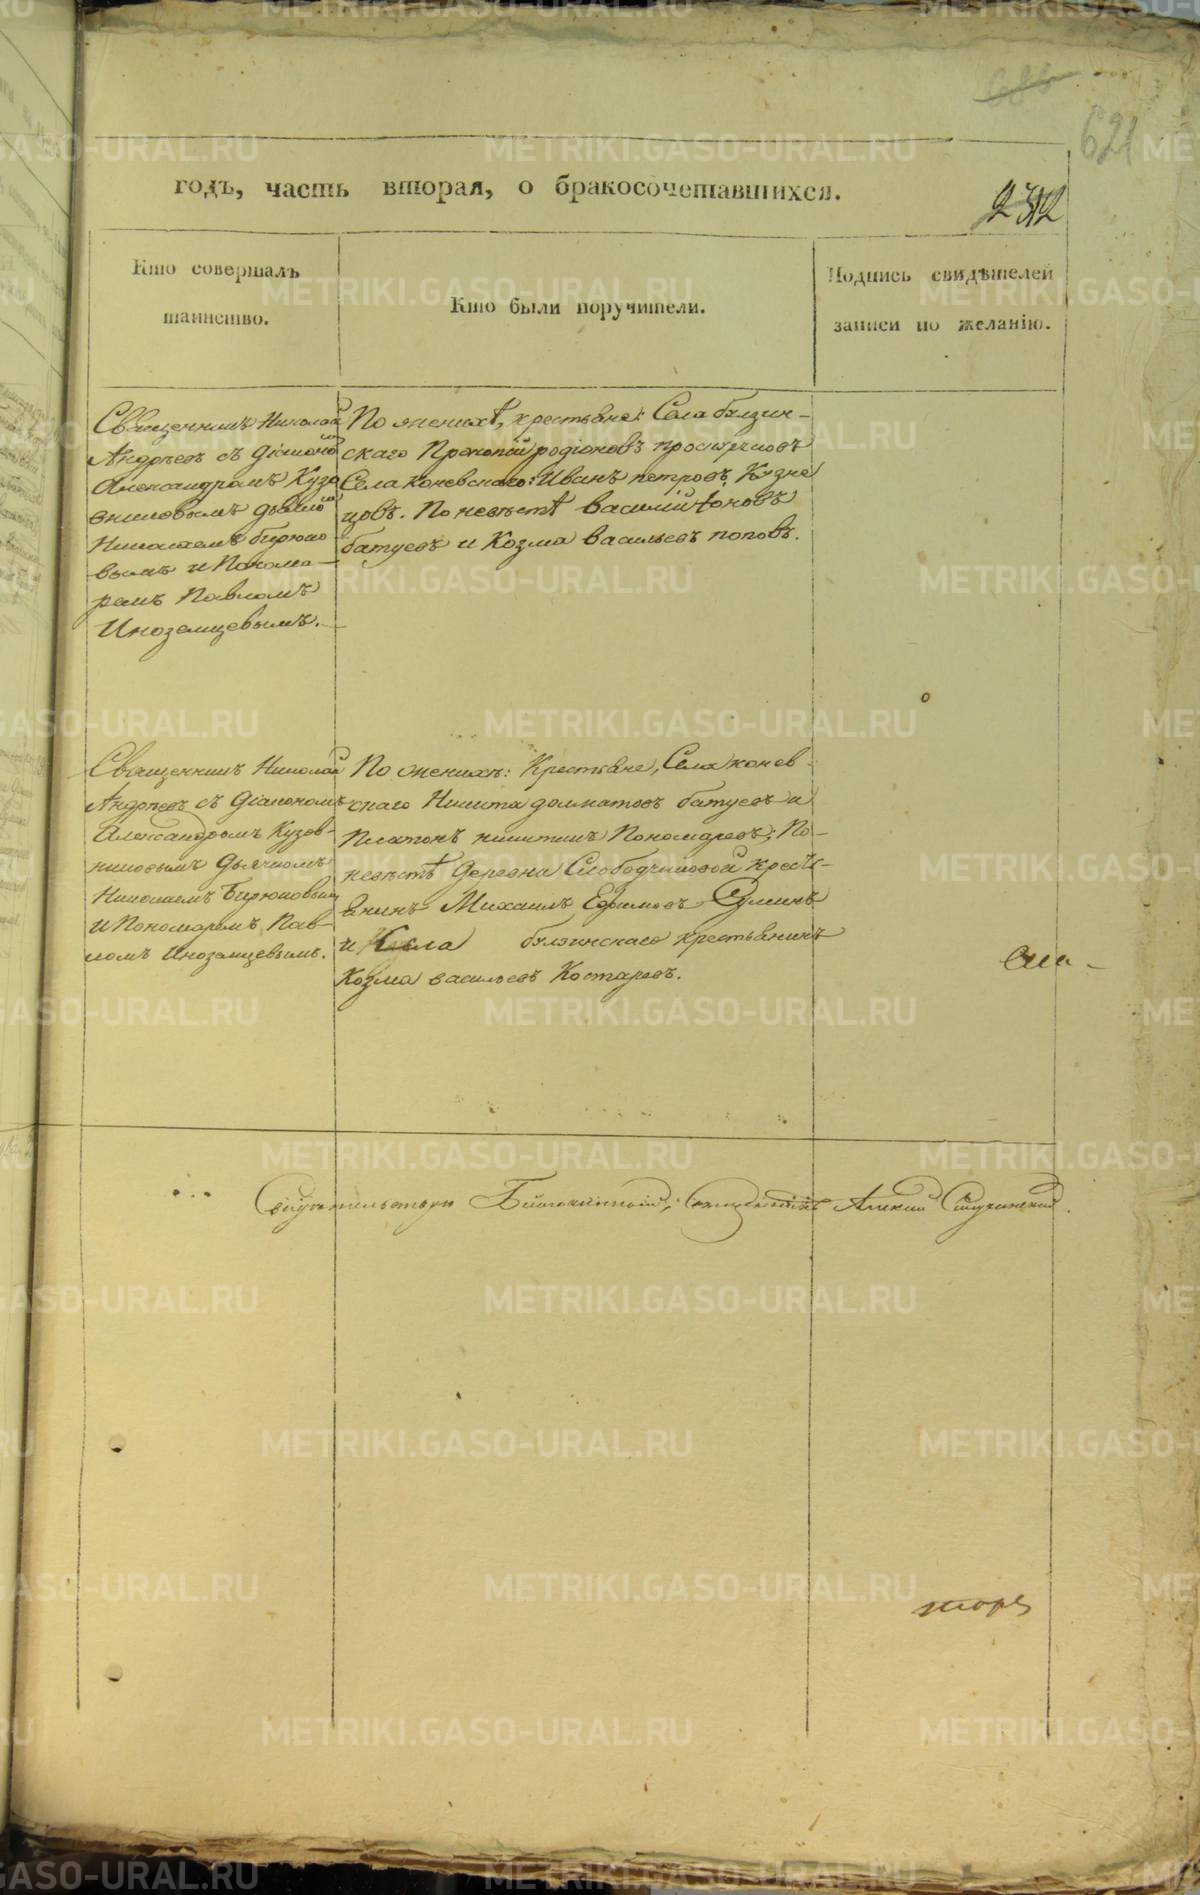 621
годъ, часть вторая, о бракосочетавшихся.
Кто совершалъ
таинство.
Кто были поручители.
Подпись свидѣтелей
записи по желанію.
Священникъ Николай
Андреевъ съ Діакономъ
Александромъ Кузо
вниковымъ дьячко
Николаемъ бирюко
вымъ и Понома-
ремъ Павломъ
Иноземцевымъ.
По женихѣ, крестьяне: Села булзин-
скаго Прокопій родіоновъ
Села коневскаго: Иванъ петровъ, Кузне
цовъ. По невѣстѣ василій іоновъ
батуевъ и Козма васильевъ поповъ.
Священникъ Николай
Андреевъ съ Діакономъ
Александромъ Кузов-
никовымъ Дьячкомъ
Николаемъ Бирюковым
и Пономаремъ Пав-
ломъ Иноземцевымъ.
По женихѣ: Крестьяне, Села конев-
скаго Никита долматовъ батуевъ и
Платонъ никитинъ Пономаревъ; По-
невѣстѣ Деревни Слободчиковой кресть-
янинъ Михаилъ Ефимовъ
и Села булзинскаго крестьянинъ
Козма васильевъ Костаревъ.
METRIKI.GASO-URAL.RU